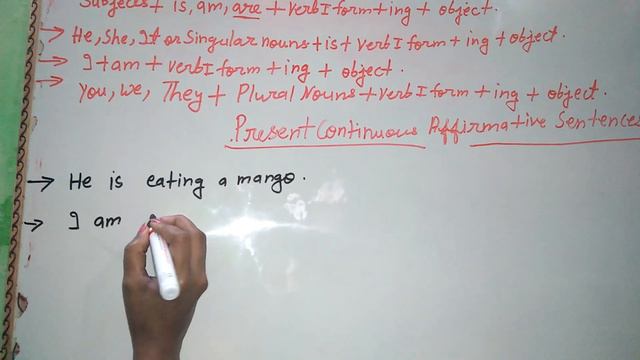 Subjects + is, am, are + verb I form + ing + object.
→ He, She, It or Singular nouns + is + verb I form + ing + object.
→ I + am + verb I form + ing + object.
→ You, we, They + Plural Nouns + verb I form + ing + object.
Present Continuous Affirmative Sentences
→ He is eating a mango.
→ I am